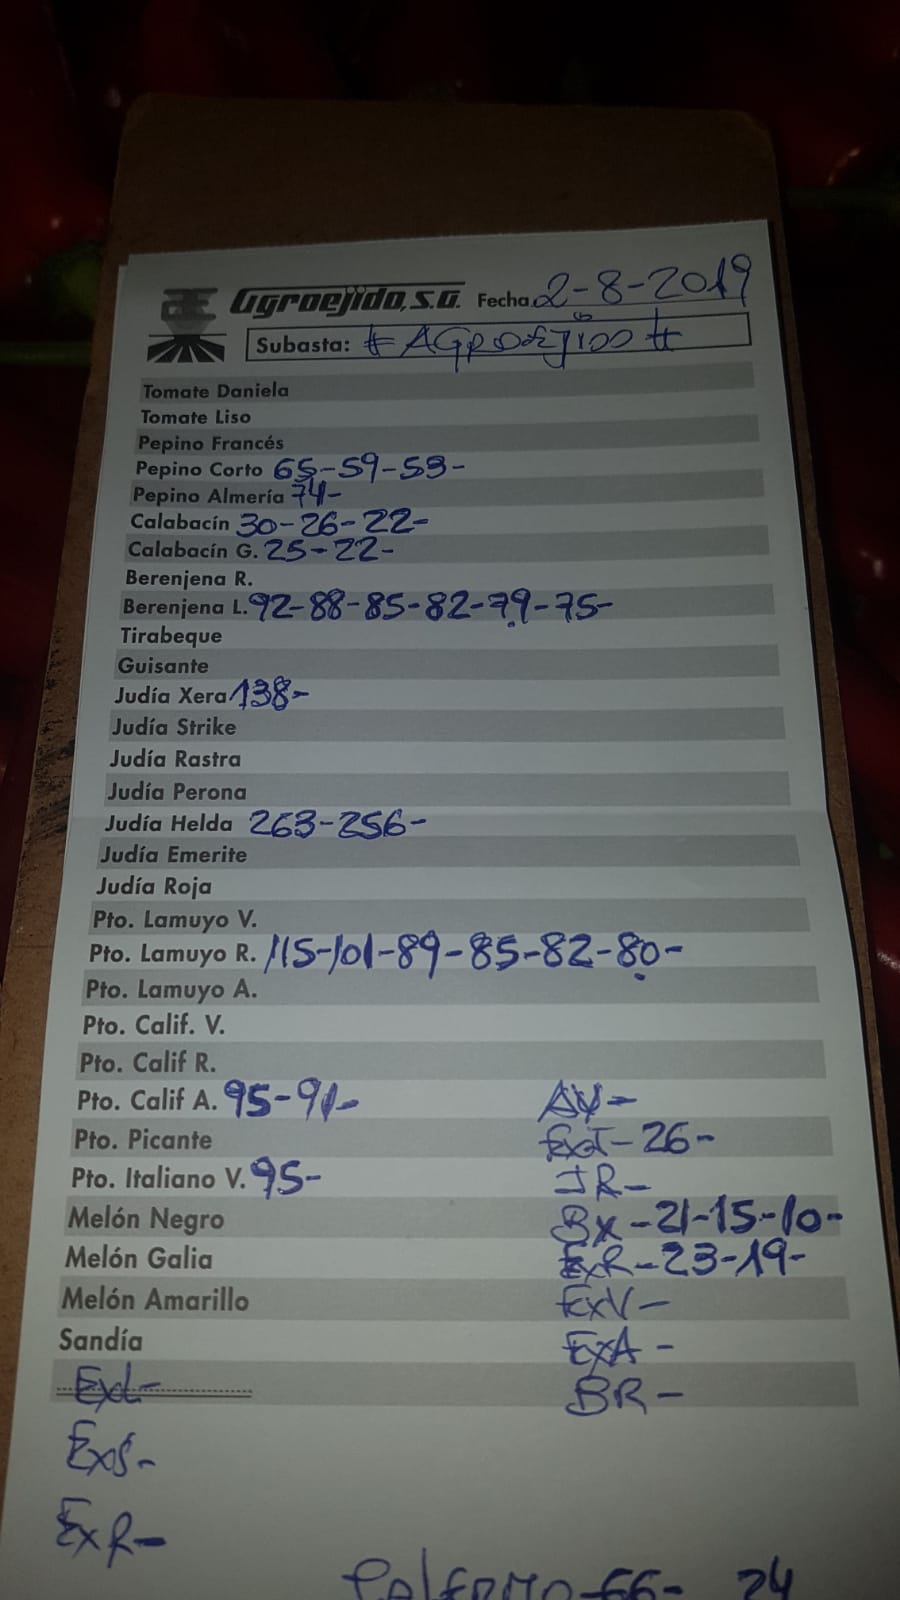 Agroejido, S.A. Fecha 2-8-2019
Subasta: # AGROEJIDO #
Tomate Daniela
Tomate Liso
Pepino Francés
Pepino Corto 65-59-53-
Pepino Almería 74-
Calabacín 30-26-22-
Calabacín G. 25-22-
Berenjena R.
Berenjena L. 92-88-85-82-79-75-
Tirabeque
Guisante
Judía Xera 138-
Judía Strike
Judía Rastra
Judía Perona
Judía Helda 263-256-
Judía Emerite
Judía Roja
Pto. Lamuyo V.
Pto. Lamuyo R. 115-101-89-85-82-80-
Pto. Lamuyo A.
Pto. Calif. V.
Pto. Calif R.
Pto. Calif A. 95-91-
Pto. Picante
Pto. Italiano V. 95-
Melón Negro
Melón Galia
Melón Amarillo
Sandía
ExL-
ExS-
ExR-
ExT-26-
JR-
BX-21-15-10-
ExR-23-19-
ExV-
ExA-
BR-
Palermo-66-